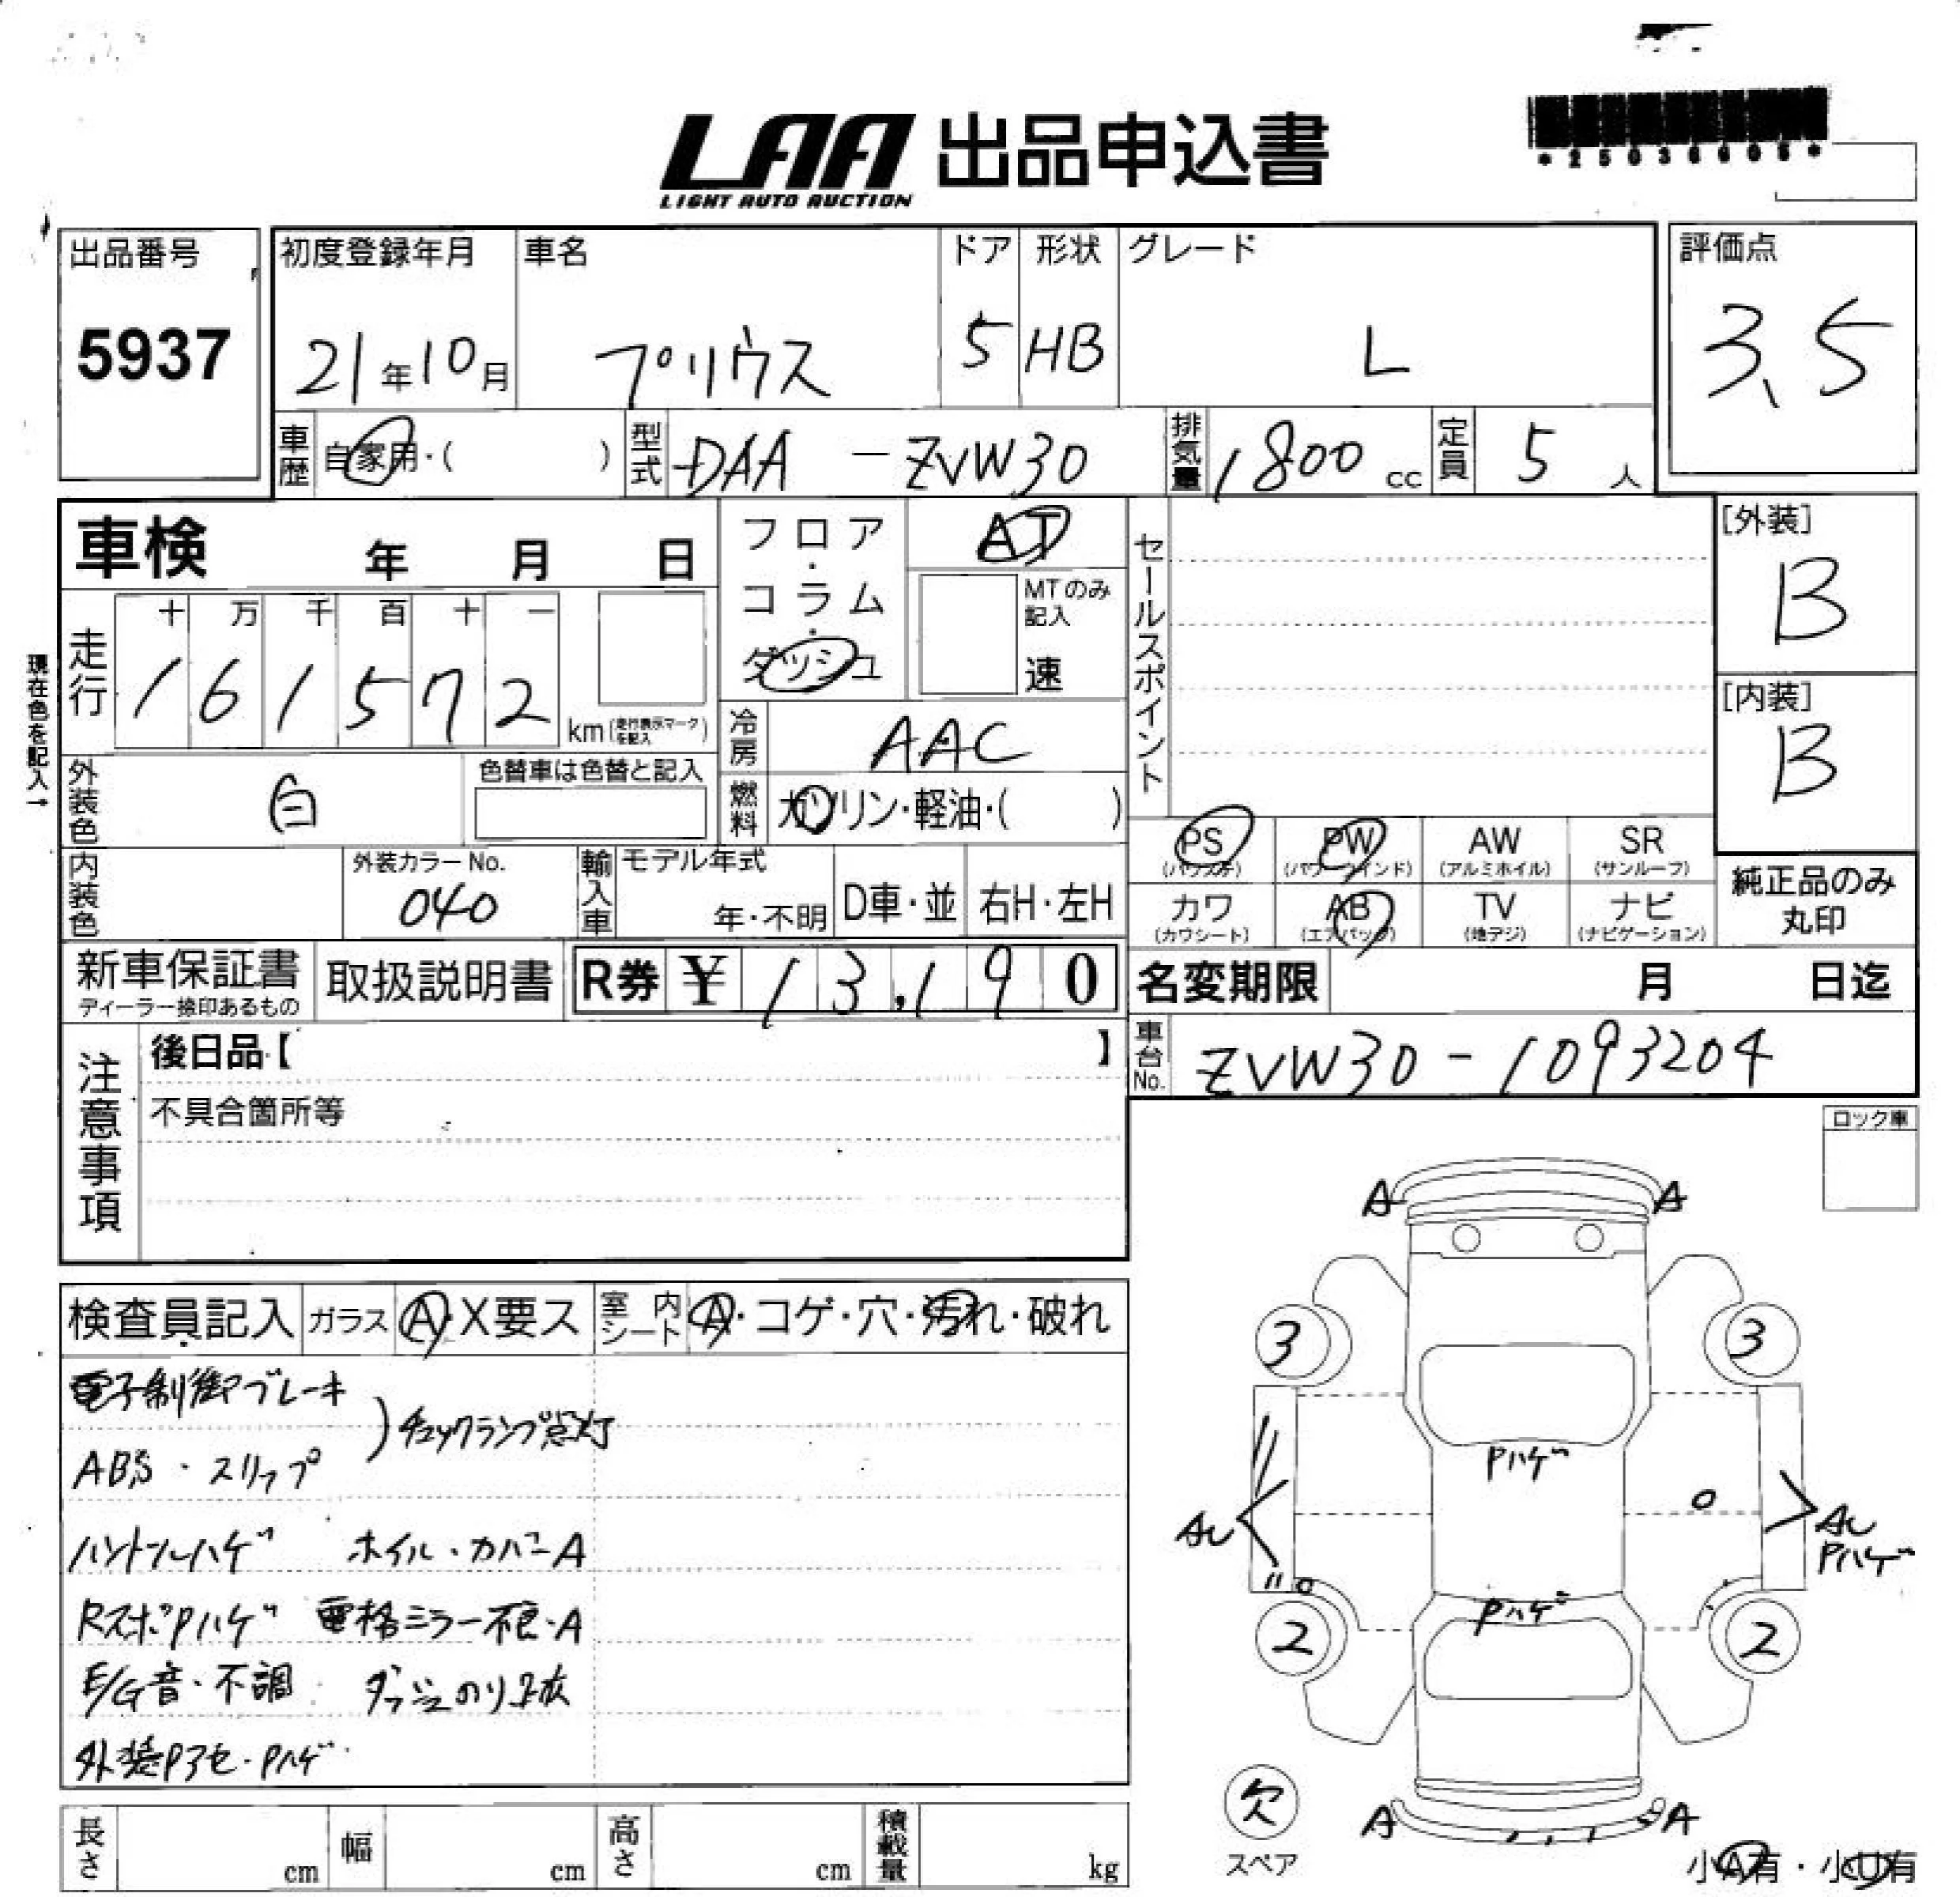 LAA 出品申込書
LIGHT AUTO AUCTION
*25036605*
出品番号
5937
初度登録年月
21年10月
車名
プリウス
ドア
5
形状
HB
グレード
L
評価点
3.5
車歴 自家用・( )
型式 DAA-ZVW30
排気量 1800 cc
定員 5 人
車検 年 月 日
走行
十 万 千 百 十 一
1 6 1 5 7 2
km(走行表示マークを記入)
現在色を記入→
フロア・コラム・ダッシュ
AT
MTのみ記入
速
冷房 AAC
燃料 ガソリン・軽油・( )
セールスポイント
[外装]
B
[内装]
B
外装色 白
色替車は色替と記入
内装色
外装カラーNo.
040
輸入車 モデル年式
年・不明
D車・並
右H・左H
PS
(パワステ)
PW
(パワーウインド)
AW
(アルミホイル)
SR
(サンルーフ)
カワ
(カワシート)
AB
(エアバッグ)
TV
(地デジ)
ナビ
(ナビゲーション)
純正品のみ
丸印
新車保証書
ディーラー捺印あるもの
取扱説明書
R券 ¥ 13,190
名変期限 月 日迄
車台No. ZVW30-1093204
注意事項
後日品【 】
不具合箇所等
ロック車
検査員記入
ガラス A・X要ス
室内シート A・コゲ・穴・汚れ・破れ
電子制御ブレーキ
ABS・スリップ )チェックランプ点灯
ハンドルハゲ ホイル・カバーA
RスポPハゲ 電格ミラー不良・A
E/G音・不調 ダッシュのり跡
外装Pアセ・Pハゲ
A A
3 3
Pハゲ
AU
AU
Pハゲ
Pハゲ
2 2
欠
スペア
A A
小A有・小U有
長さ cm
幅 cm
高さ cm
積載量 kg